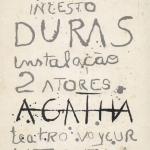 INCESTO
DURAS
instalação
2 ATORES
AGATHA
teatro voyeur